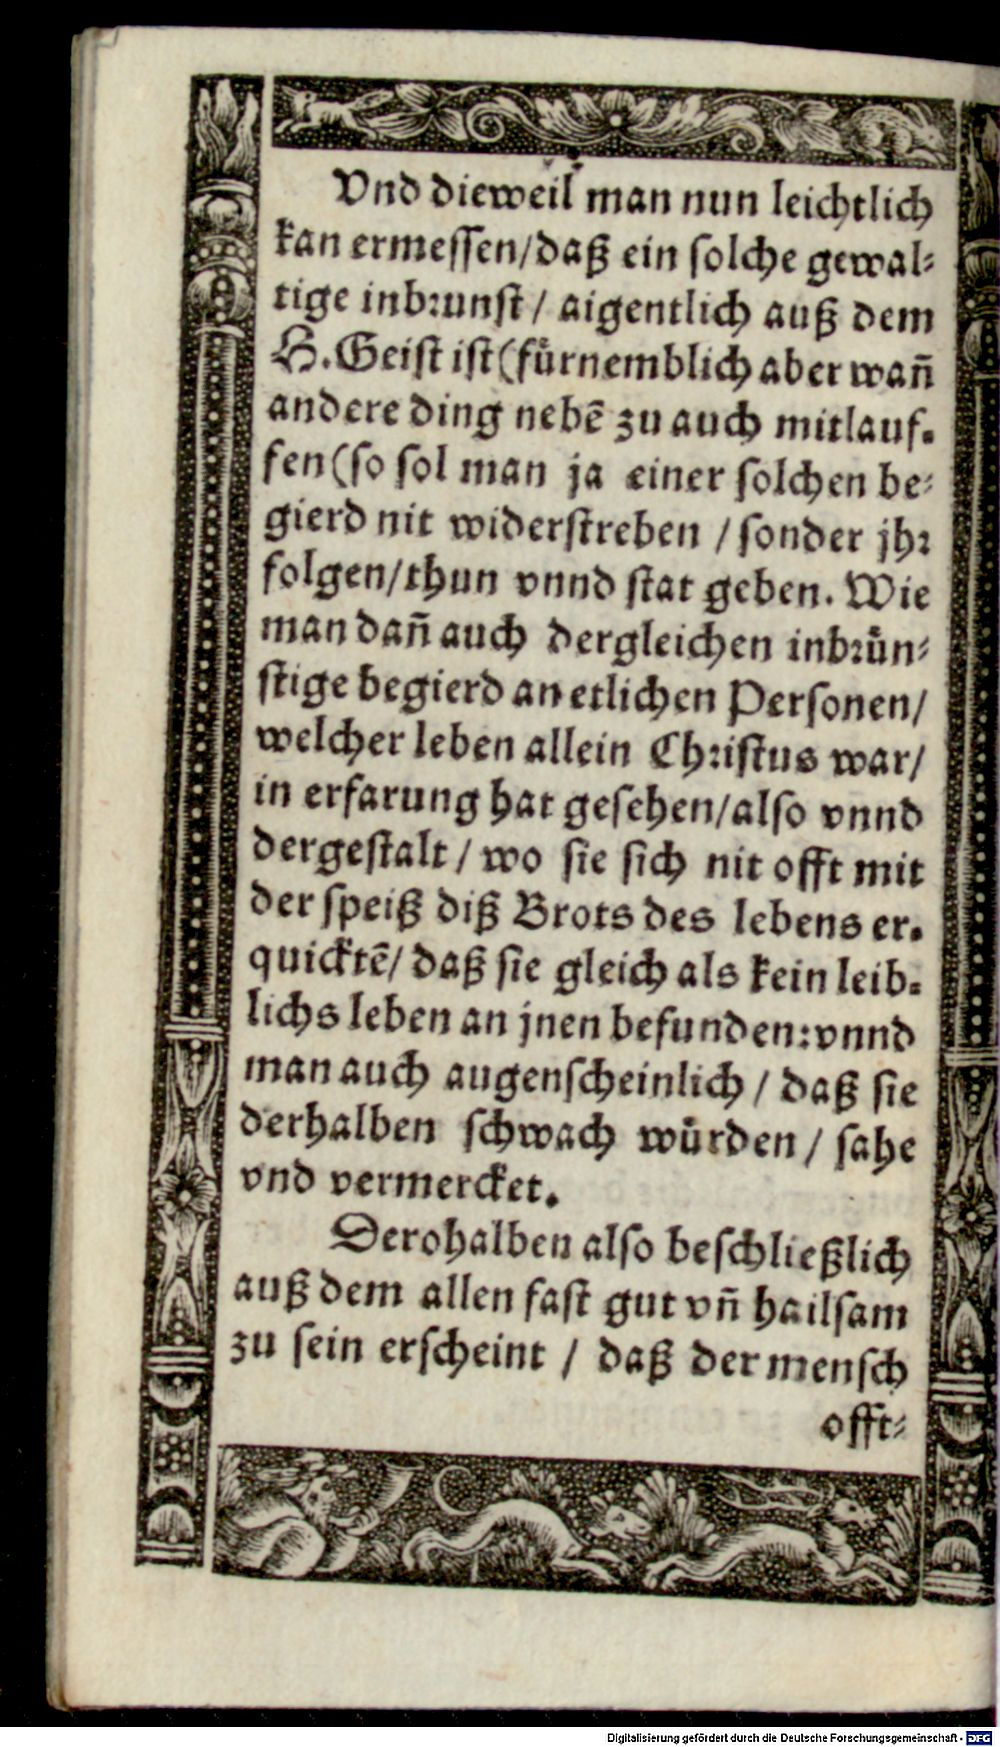 Vnd dieweil man nun leichtlich
kan ermessen/daß ein solche gewal-
tige inbrunst / aigentlich auß dem
H. Geist ist (fürnemblich aber wañ
andere ding nebẽ zu auch mitlauf-
fen (so sol man ja einer solchen be-
gierd nit widerstreben / sonder jhr
folgen/thun vnnd stat geben. Wie
man dañ auch dergleichen inbrün-
stige begierd an etlichen Personen/
welcher leben allein Christus war/
in erfarung hat gesehen/also vnnd
dergestalt / wo sie sich nit offt mit
der speiß diß Brots des lebens er-
quicktẽ/ daß sie gleich als kein leib-
lichs leben an jnen befunden: vnnd
man auch augenscheinlich / daß sie
derhalben schwach würden / sahe
vnd vermercket.
Derohalben also beschließlich
auß dem allen fast gut vñ hailsam
zu sein erscheint / daß der mensch
offt-
Digitalisierung gefördert durch die Deutsche Forschungsgemeinschaft - DFG